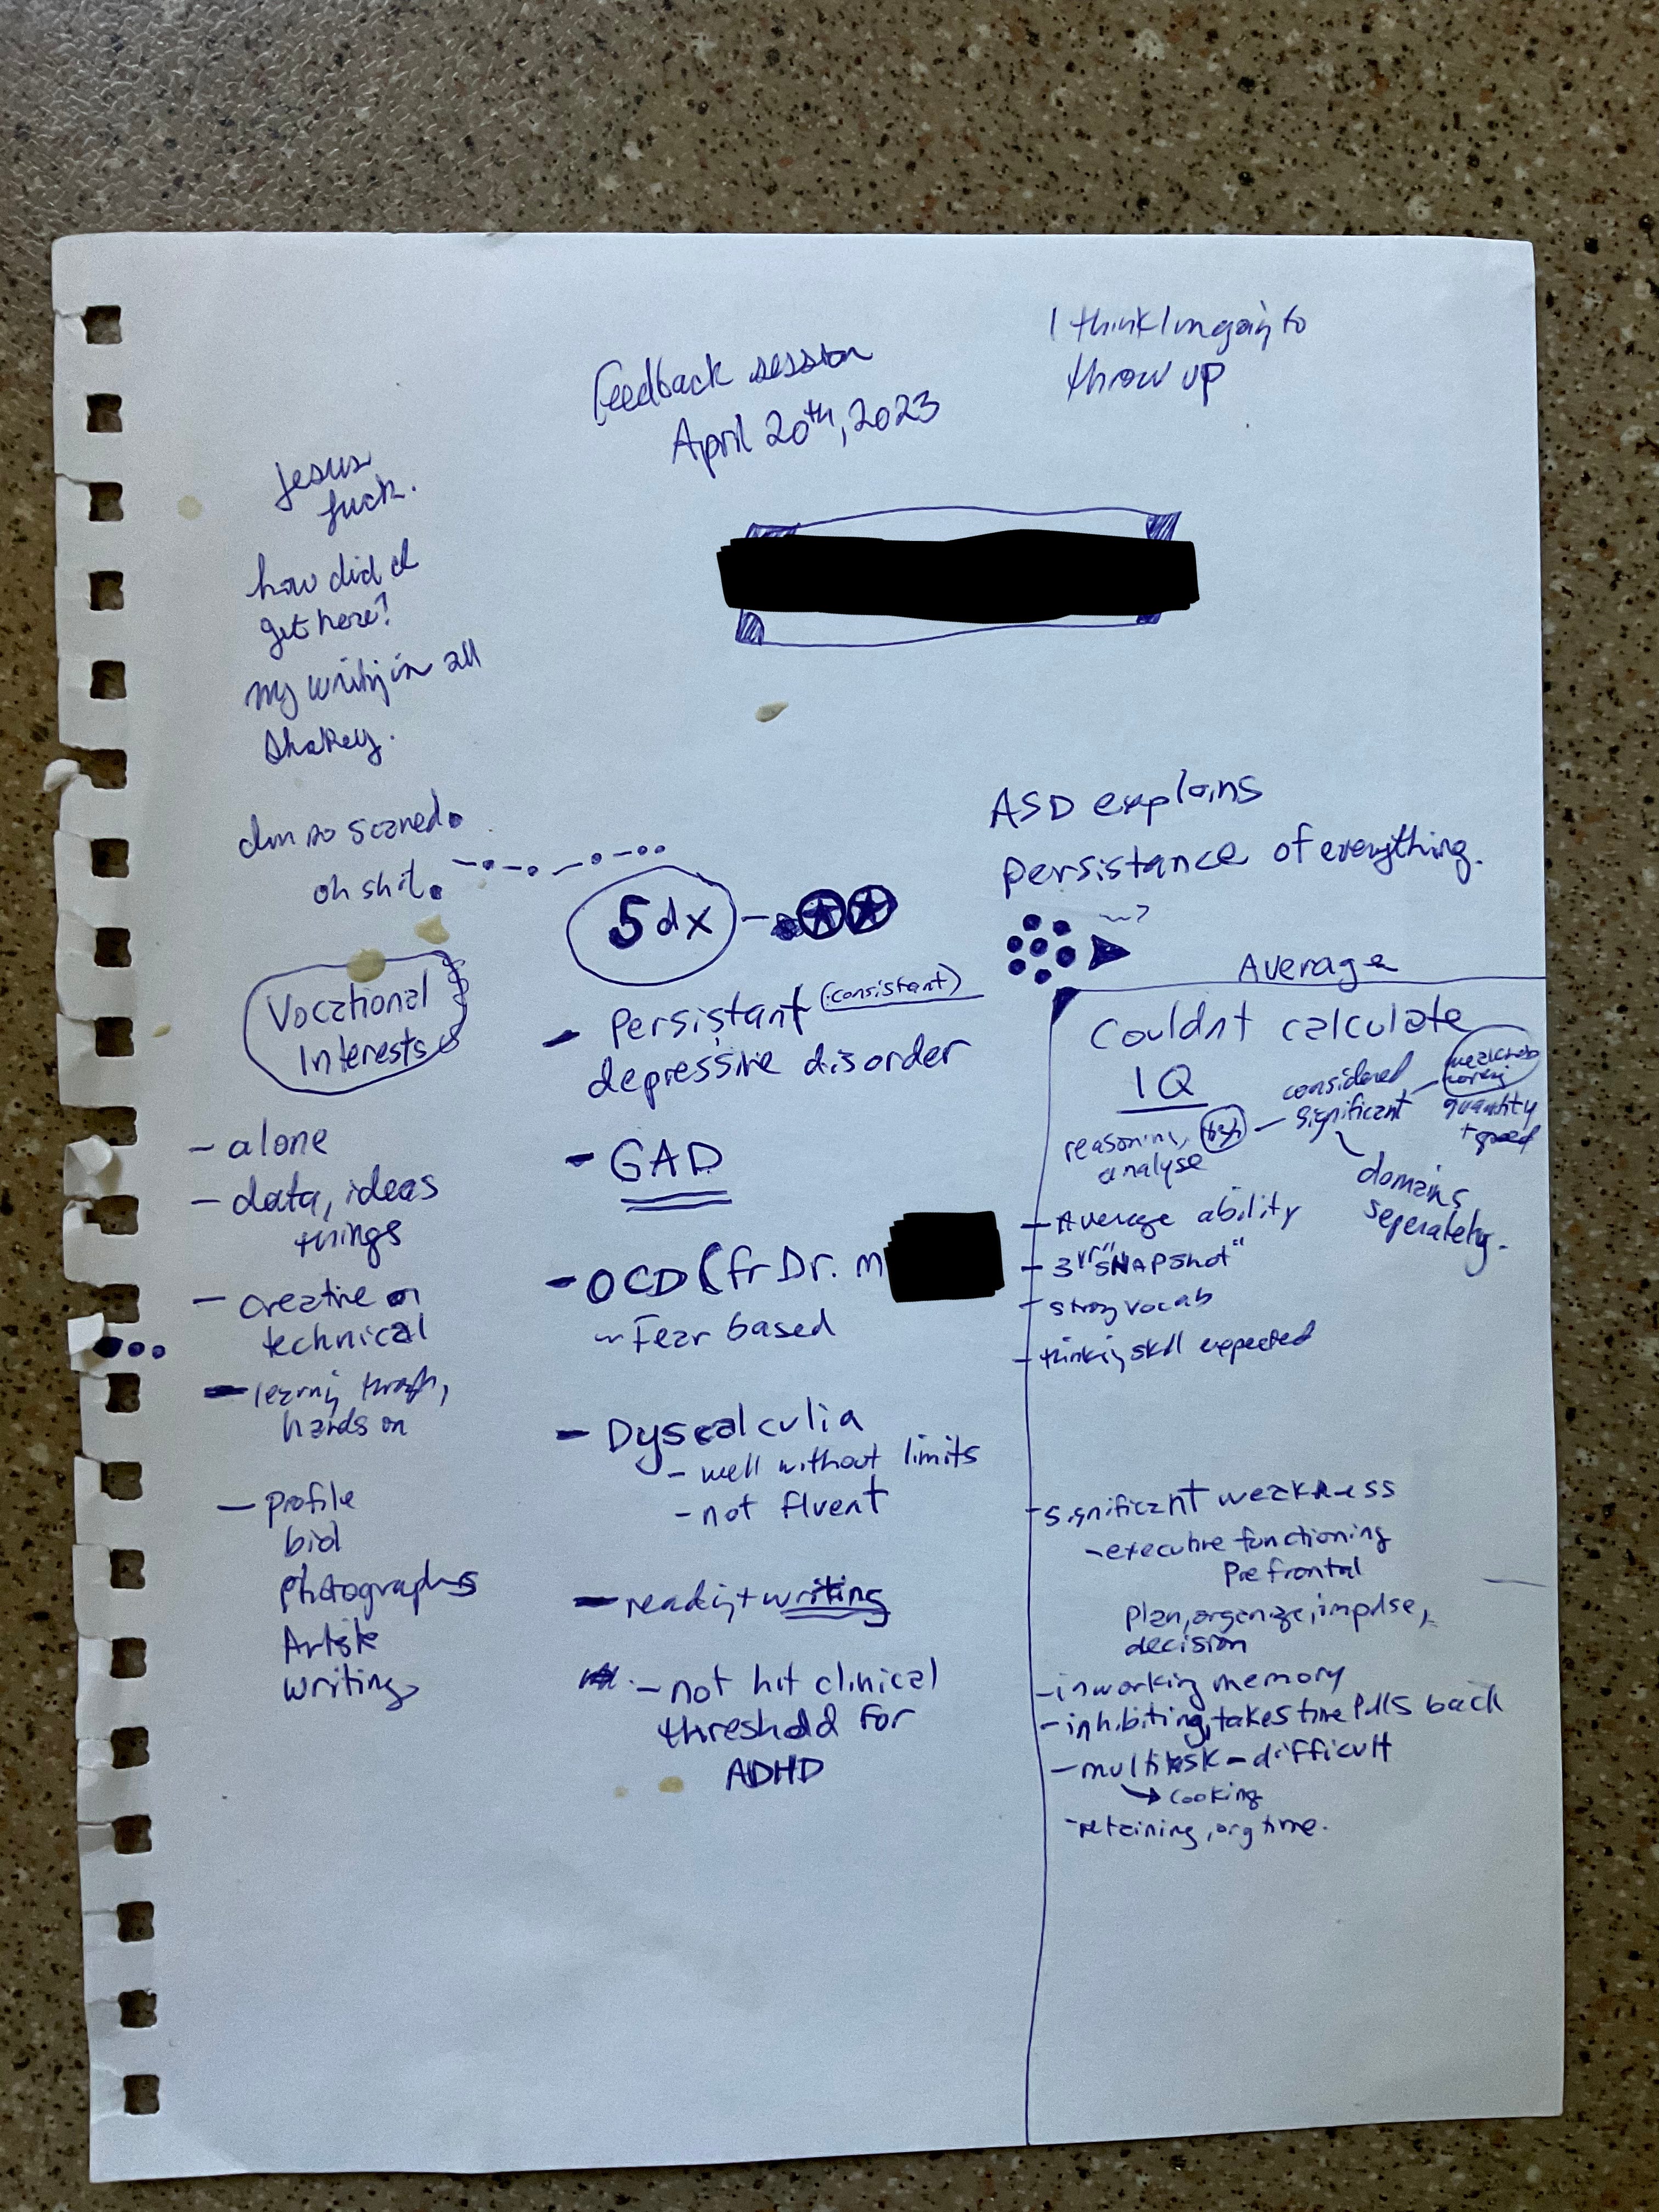 I think Im going to
throw up
Feedback session
April 20th, 2023
Jesus
fuck.
how did I
get here?
my writing in all
shakey.
Im so scared.
oh shit.
ASD explains
persistance of everything.
5 dx
Vocational
Interests
- alone
- data, ideas
things
- creative or
technical
- hands on
- profile
bid
photographs
Artist
writing
- Persistant (consistant)
depressive disorder
- GAD
- OCD (fr Dr. M
~ Fear based
- Dyscalculia
- well without limits
- not fluent
- reading + writing
- not hit clinical
threshold for
ADHD
Average
Couldnt calculate
IQ
reasoning,
analyse
considered
significant
quantity
+ speed
domains
seperately.
- Average ability
- 3 yr "SNAPShot"
- strong vocab
- thinking skill expected
- significant weakness
- executive functioning
Prefrontal
plan, organize, impulse,
decision
- in working memory
- inhibiting, takes time pulls back
- multitask - difficult
→ cooking
- retaining, org time.